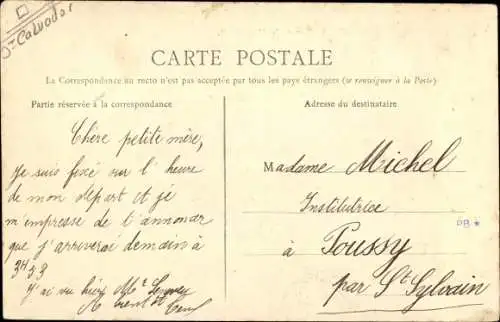 Dt Calvados
CARTE POSTALE
La Correspondance au recto n'est pas acceptée par tous les pays étrangers (se renseigner à la Poste).
Partie réservée à la correspondance
Adresse du destinataire
Chère petite mère,
Je suis fixé sur l'heure
de mon départ et je
m'empresse de t'annoncer
que j'arriverai demain à
3H 23
J'ai vu hier Mr
Madame Michel
Institutrice
à Poussy
par St Sylvain
PB *